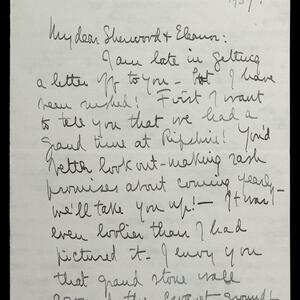 1937.
My dear Sherwood & Eleanor:
I am late in getting
a letter off to you – But I have
been rushed! First I want
to tell you that we had a
grand time at Ripshin! You'd
better look out – making rash
promises about coming yearly –
we'll take you up! – It was
even lovlier than I had
pictured it. I envy you
that grand stone wall